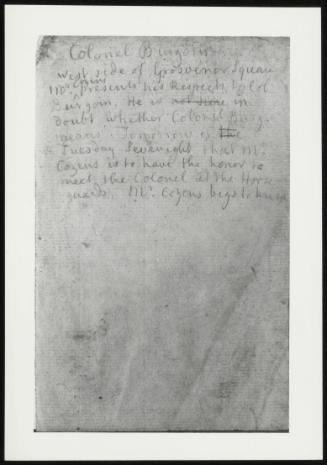 Colonel Burgoin
West side of Grosvenor Square
Mr Cozens Presents his Respects to Col
Burgoin. He is not sure in
doubt whether Colonel Burg.
means Tomorrow or the
Tuesday Sevennight that Mr
Cozens is to have the honor to
meet the Colonel at the Horse
guards, Mr. Cozens begs to know